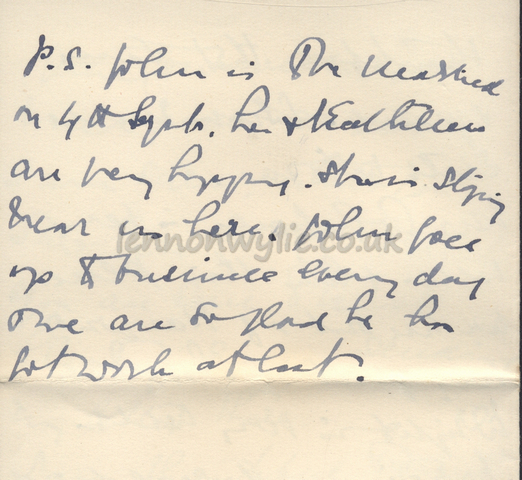 P.S. John is to be married
on 4th Septr. he & Kathleen
are very happy. She is staying
near us here. John goes
up to business every day
& we are so glad he has
got work at last.
lennonwylie.co.uk